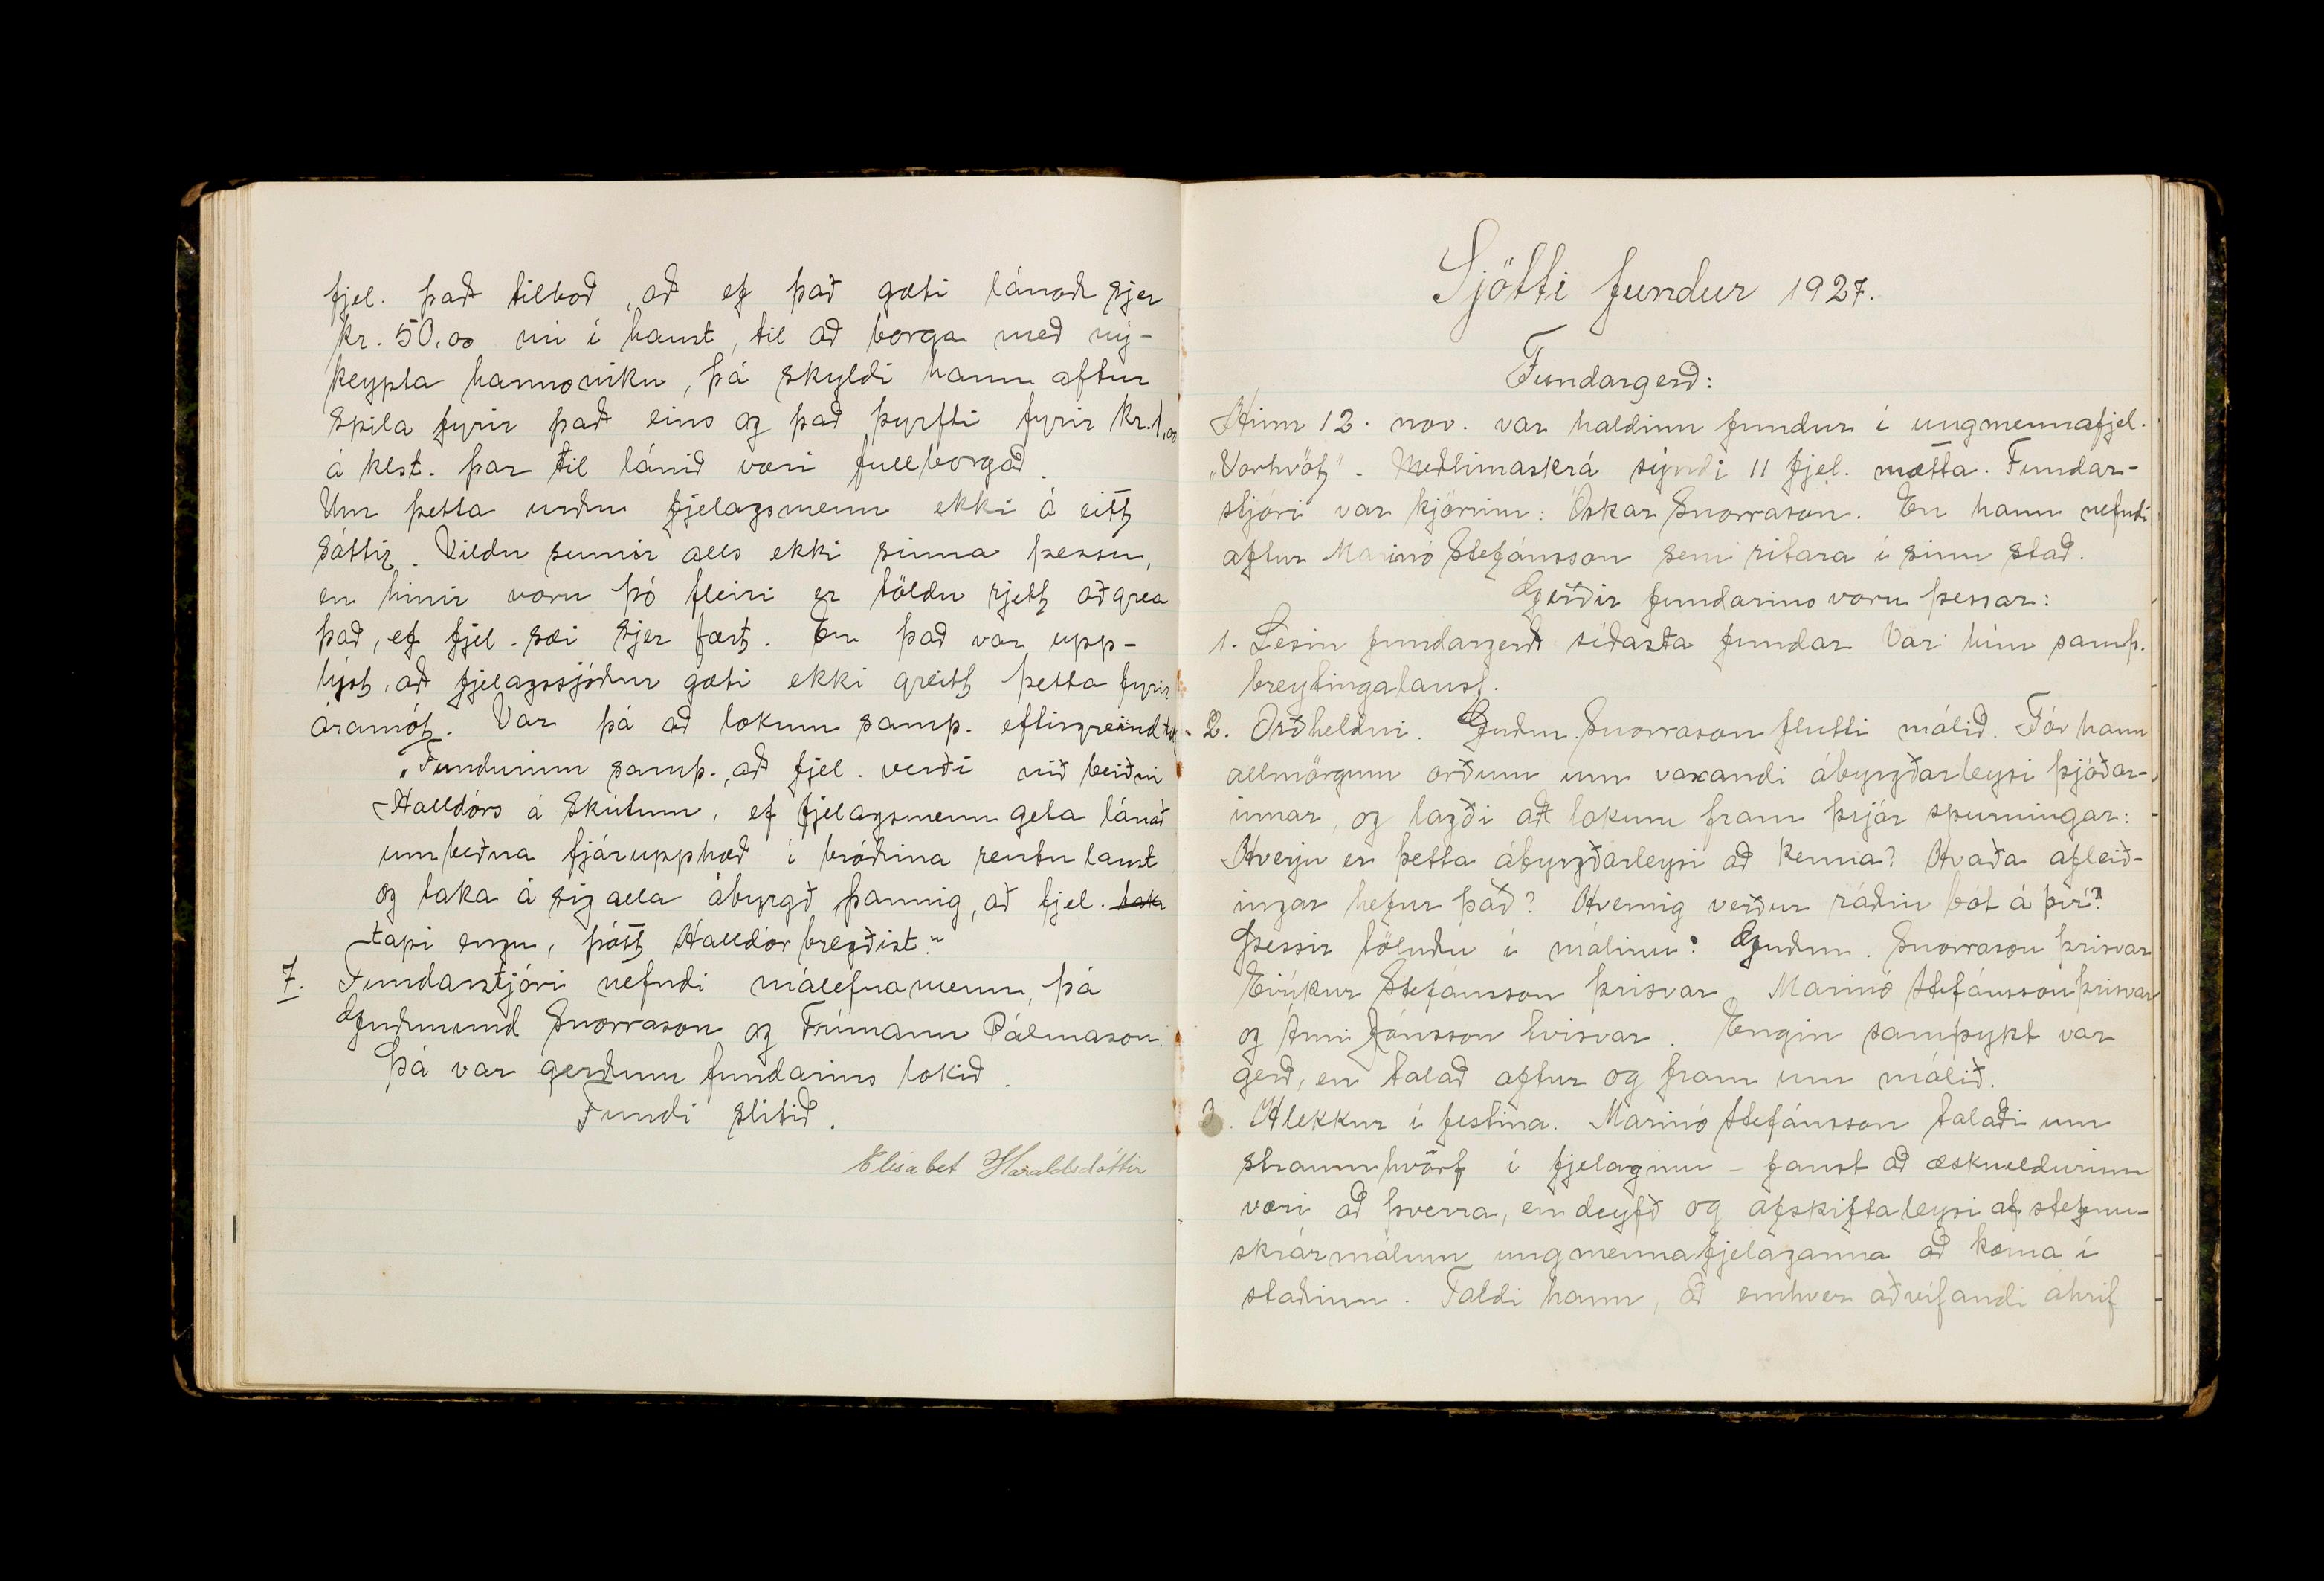 fjel. það tilboð, að ef það gæti lánað sjer
kr. 50.00 nú í haust, til að borga með ný-
keypta harmoniku, þá skyldi hann aftur
spila fyrir það eins og það þyrfti fyrir kr. 1,00
á klst. þar til lánið væri fullborgað.
Um þetta urðu fjelagsmenn ekki á eitt
sáttir. Vildu sumir alls ekki sinna þessu,
en hinir voru þó fleiri er töldu rjett að grea
það, ef fjel. sæi sjer fært. En það var upp-
lýst, að fjelagssjóður gæti ekki greitt þetta fyrir
áramót. Var þá að lokum samþ. eftirgreind
„Fundurinn samþ., að fjel. verði við beiðni
Halldórs á Skútum, ef fjelagsmenn geta lánað
umbeðna fjárupphæð í bráðina rentulaust
og taka á sig alla ábyrgð þannig, að fjel. taki
tapi engu, þótt Halldór bregðist."
7. Fundarstjóri nefndi málefnamenn, þá
Guðmund Snorrason og Frímann Pálmason.
Þá var gerðum fundarins lokið.
Fundi slitið.
Elísabet Haraldsdóttir
Sjötti fundur 1927.
Fundargerð:
Hinn 12. nov. var haldinn fundur í ungmennafjel.
„Vorhvöt". Meðlimaskrá sýndi 11 fjel. mætta. Fundar-
stjóri var kjörinn: Óskar Snorrason. En hann nefndi
aftur Marinó Stefánsson sem ritara í sinn stað.
Gerðir fundarins voru þessar:
1. Lesin fundargerð síðasta fundar. Var hún samþ.
breytingalaust.
2. Orðheldni. Guðm. Snorrason flutti málið. Fór hann
allmörgum orðum um vaxandi ábyrgðarleysi þjóðar-
innar, og lagði að lokum fram þrjár spurningar:
Hverju er þetta ábyrgðarleysi að kenna? Hvaða afleið-
ingar hefur það? Hvernig verður ráðin bót á því?
Þessir töluðu í málinu: Guðm. Snorrason þrisvar
Eiríkur Stefánsson þrisvar, Marinó Stefánsson þrisvar
og Árni Jónsson tvisvar. Engin samþykt var
gerð, en talað aftur og fram um málið.
3. Hlekkur í festina. Marinó Stefánsson talaði um
straumhvörf í fjelaginu - fanst að æskueldurinn
væri að þverra, en deyfð og afskiftaleysi af stefnu-
skrármálum ungmennafjelaganna að koma í
staðinn. Taldi hann, að einhver aðvífandi áhrif